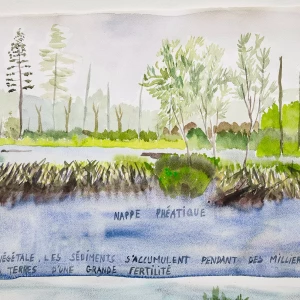 NAPPE PHÉATIQUE
VÉGÉTALE, LES SÉDIMENTS S'ACCUMULENT PENDANT DES MILLIER
TERRES D'UNE GRANDE FERTILITÉ